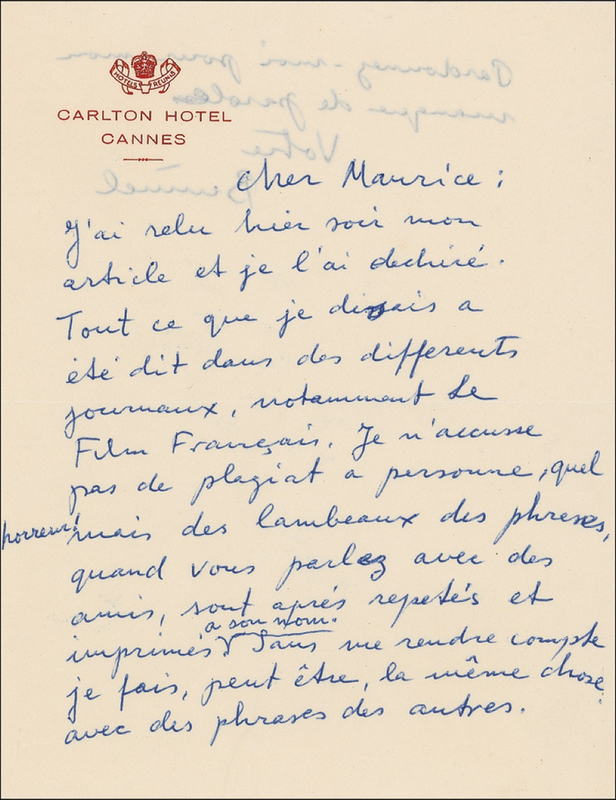 HOTELS REUNIS
CARLTON HOTEL
CANNES
Cher Maurice :
J'ai relu hier soir mon
article et je l'ai dechiré.
Tout ce que je disais a
été dit dans des differents
journaux, notamment Le
Film Français. Je n'accusse
pas de plagiat a personne, quel
horreur! mais des lambeaux des phrases,
quand vous parlez avec des
amis, sont aprés repetés et
a son nom.
imprimés V Sans me rendre compte
je fais, peut être, la même chose
avec des phrases des autres.
Pardonnez-moi pour mon
manque de paroles
Votre
Bunuel